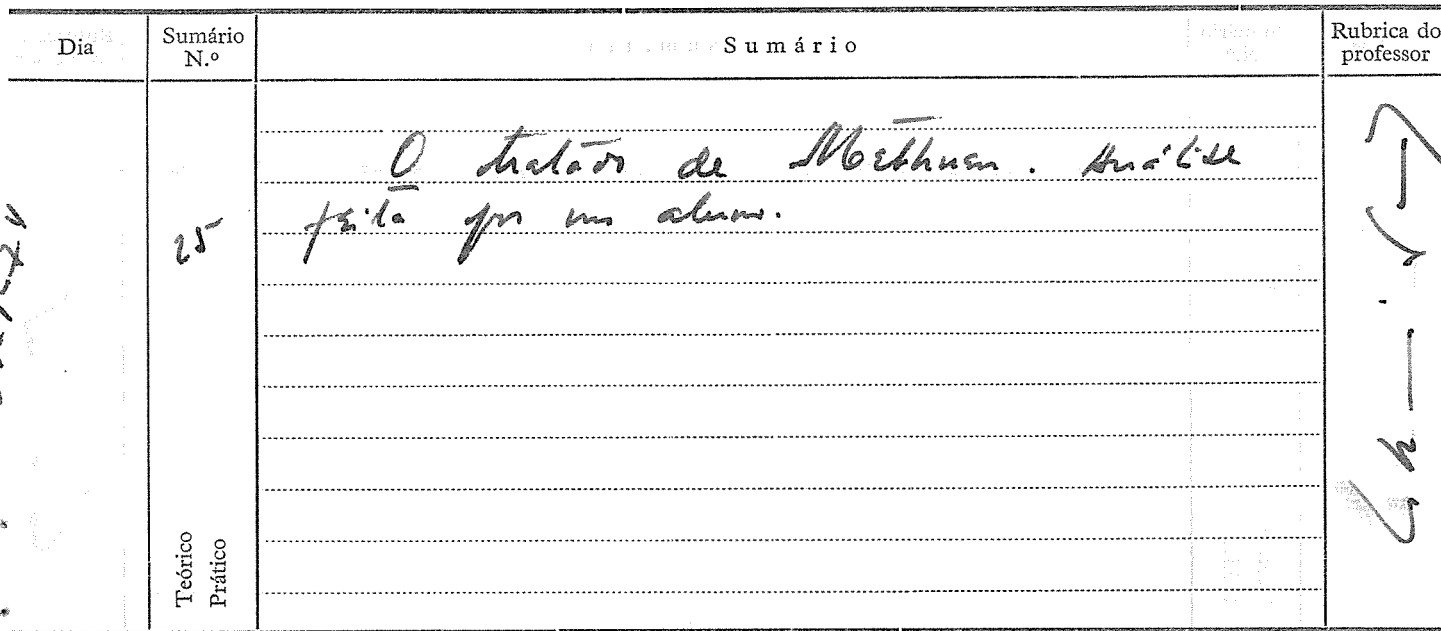 Dia
Sumário
N.º
Sumário
Rubrica do
professor
O tratado de Methuen. Análise
feita por um aluno.
25
Teórico
Prático